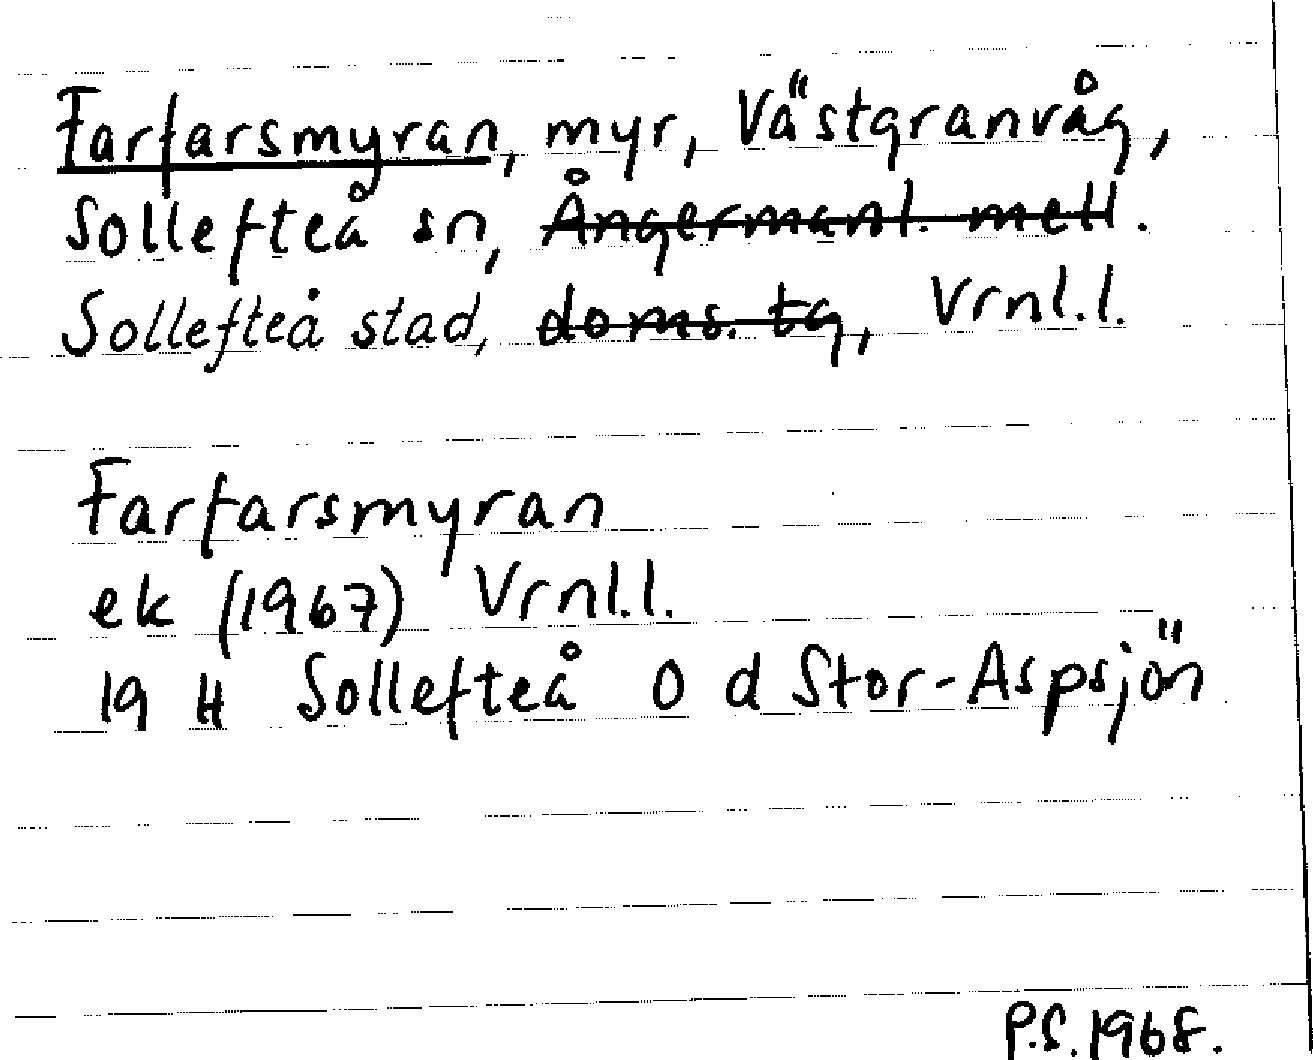 Farfarsmyran, myr, Västgranvåg,
Sollefteå sn, Ångermanl. mell.
Sollefteå stad, doms. tg, Vrnl.l.
Farfarsmyran
ek (1967) Vrnl.l.
19 H Sollefteå O d Stor-Aspsjön
P.S. 1968.